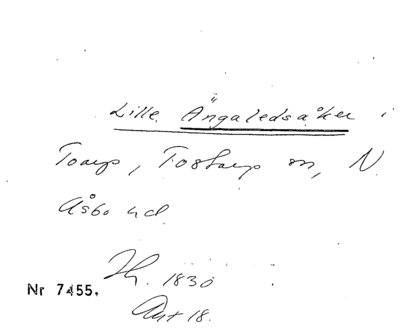 Lille Ängaledsåker i
Toarp, Tostarp sn, N.
Åsbo hd.
Hh. 1830
Nr 7455.
Akt 18.